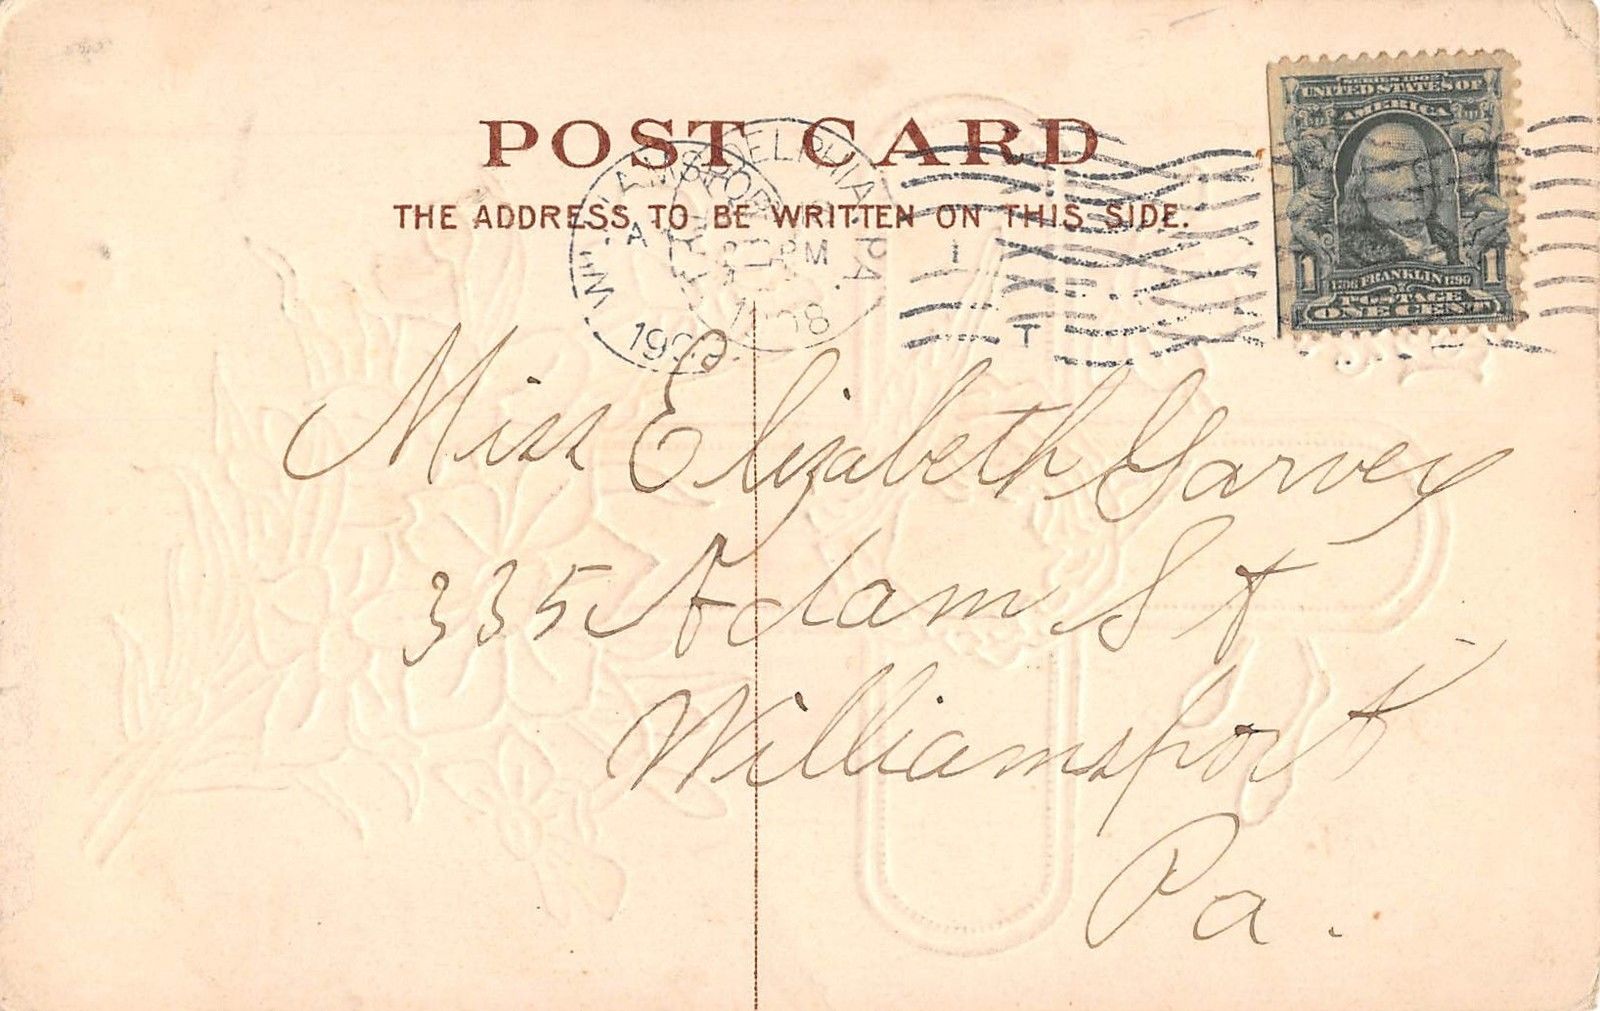 POST CARD
THE ADDRESS TO BE WRITTEN ON THIS SIDE.
PA.
PM
1908
A
1
T
SERIES 1902
UNITED STATES OF
AMERICA
1 1
1706 FRANKLIN 1790
POSTAGE
ONE CENT
Miss Elizabeth Garvey
335 Adam St
Williamsport
Pa.